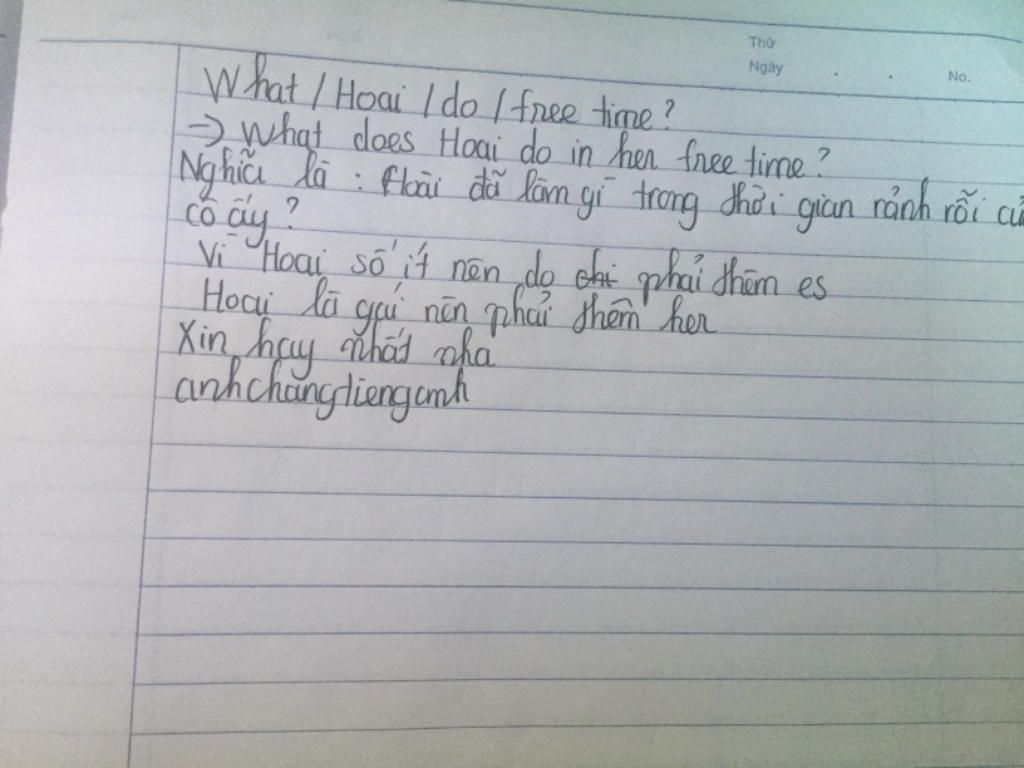 Thứ
Ngày . . No.
What / Hoai / do / free time?
→ What does Hoai do in her free time?
Nghĩa là : Hoài đã làm gì trong thời gian rảnh rỗi củ
cô ấy ?
Vì Hoai số ít nên do chi phải thêm es
Hoai là gái nên phải thêm her
Xin hay nhất nha
anhchangtienganh